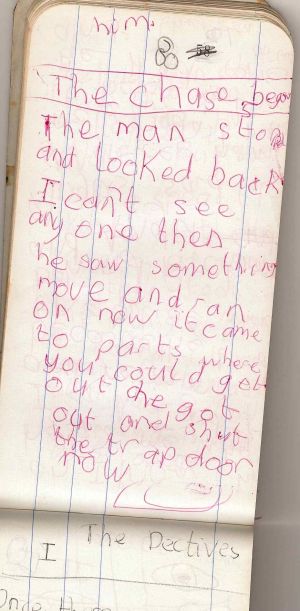 him.
The chase began
The man stoped
and looked back
I can't see
any one then
he saw something
move and ran
on now it came
to parts where
you could get
out he got
out and shut
the trap door
now
The Dectives
I
Once